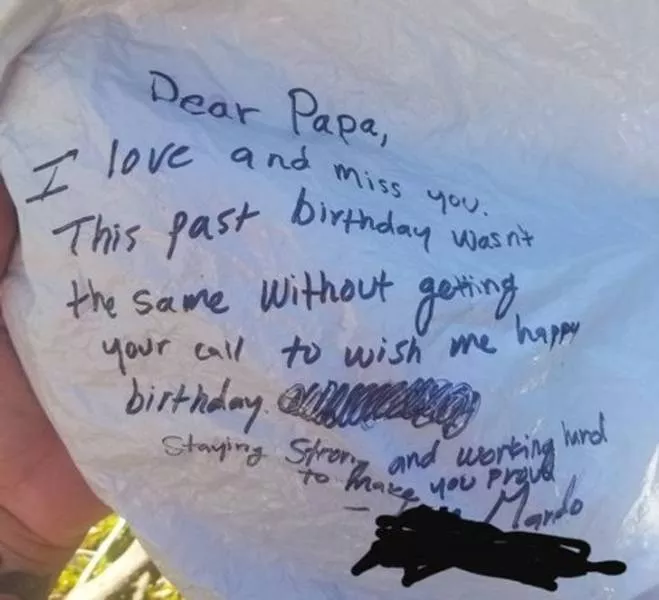 Dear Papa,
I love and miss you.
This past birthday wasnt
the same without getting
your call to wish me happy
birthday.
Staying Strong and working hard
to make you proud
- Mando